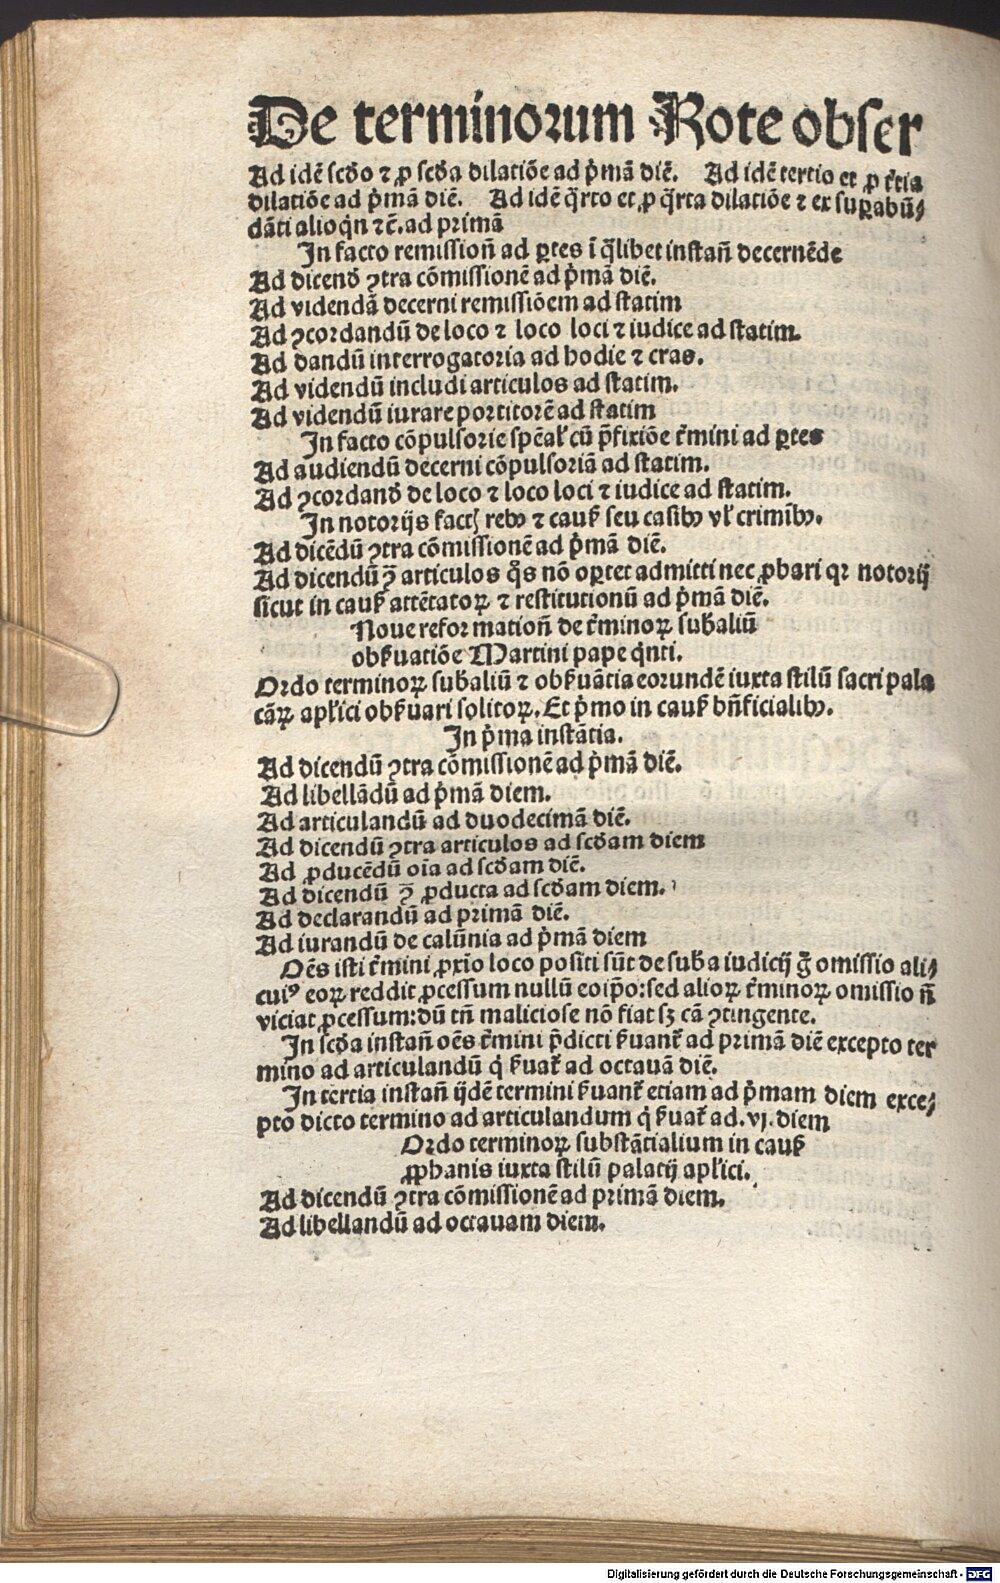 De terminorum Rote obser
Ad idē scḋo ⁊ ꝓ scḋa dilatiōe ad p̍mā diē. Ad idē tertio et ꝓ t̄cia
dilatiōe ad p̍mā diē. Ad idē q̈rto et ꝓ q̈rta dilatiōe ⁊ ex suꝑabū⸗
dāti alioq̍n ⁊c̄. ad primā
In facto remissioñ ad ꝑtes ī q̈libet instañ decernēde
Ad dicenḋ ꝯtra cōmissionē ad p̍mā diē.
Ad videndā decerni remissiōem ad statim
Ad ꝯcordandū de loco ⁊ loco loci ⁊ iudice ad statim.
Ad dandū interrogatoria ad hodie ⁊ cras.
Ad videndū includi articulos ad statim.
Ad videndū iurare portitorē ad statim
In facto cōpulsorie spēał cū p̄fixiōe t̄mini ad ꝑtes
Ad audiendū decerni cōpulsoriā ad statim.
Ad ꝯcordanḋ de loco ⁊ loco loci ⁊ iudice ad statim.
In notorijs factꝭ rebꝰ ⁊ cauẜ seu casibꝰ vł crimībꝰ.
Ad dicēdū ꝯtra cōmissionē ad p̍mā diē.
Ad dicendū ꝯ̄ articulos q̊s nō oꝑtet admitti nec ꝓbari qꝛ notorij
sicut in cauẜ attētatoꝝ ⁊ restitutionū ad p̍mā diē.
Noue reformationñ de t̄minoꝝ subaliū
obẜuatiōe Martini pape q̍nti.
Ordo terminoꝝ subaliū ⁊ obẜuātia eorundē iuxta stilū sacri pala
cāꝝ apłici obẜuari solitoꝝ. Et p̍mo in cauẜ bñficialibꝰ.
In p̍ma instātia.
Ad dicendū ꝯtra cōmissionē ad p̍mā diē.
Ad libellādū ad p̍mā diem.
Ad articulandū ad duodecimā diē.
Ad dicendū ꝯtra articulos ad scḋam diem
Ad ꝓducēdū oīa ad scḋam diē.
Ad dicendū ꝯ̄ ꝓducta ad scḋam diem.
Ad declarandū ad primā diē.
Ad iurandū de calūnia ad p̍mā diem
Oēs isti t̄mini ꝓxīo loco positi sūt de suba iudicij q̄ omissio ali⸗
cuiꝰ eoꝝ reddit ꝓcessum nullū eoip̄o: sed alioꝝ t̄minoꝝ omissio ñ
viciat ꝓcessum: dū tñ maliciose nō fiat sꝫ cā ꝯtingente.
In scḋa instañ oēs t̄mini p̄dicti ẜuant̃ ad primā diē excepto ter
mino ad articulandū q̍ ẜuat̃ ad octauā diē.
In tertia instañ ijdē termini ẜuant̃ etiam ad p̍mam diem exce⸗
pto dicto termino ad articulandum q̍ ẜuat̃ ad .vj. diem
Ordo terminoꝝ substātialium in cauẜ
ꝓphanis iuxta stilū palatij apłici.
Ad dicendū ꝯtra cōmissionē ad primā diem.
Ad libellandū ad octauam diem.
Digitalisierung gefördert durch die Deutsche Forschungsgemeinschaft - DFG